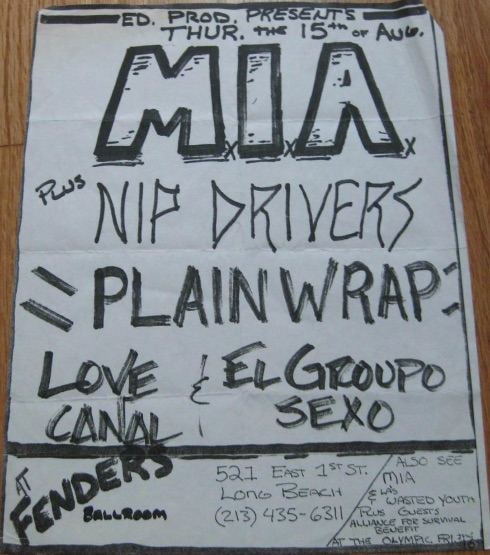 ED. PROD. PRESENTS
THUR. THE 15TH OF AUG.
M.I.A.
PLUS
NIP DRIVERS
PLAIN WRAP
LOVE CANAL & EL GROUPO SEXO
AT FENDERS BALLROOM
521 EAST 1ST ST.
LONG BEACH
(213) 435-6311
ALSO SEE
MIA
& LA'S
WASTED YOUTH
PLUS GUESTS
ALLIANCE FOR SURVIVAL
BENEFIT
AT THE OLYMPIC FRI.